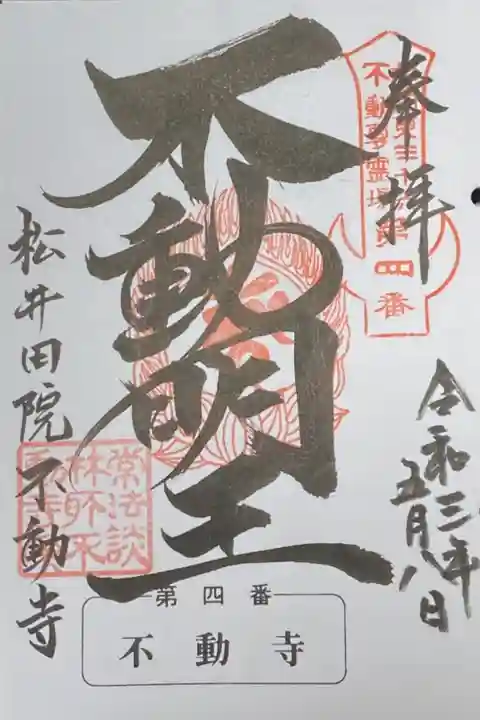 奉拝
不動尊霊場
第四番
不動明王
令和三年
五月八日
松井田院不動寺
常法談
林所不
第四番
不動寺